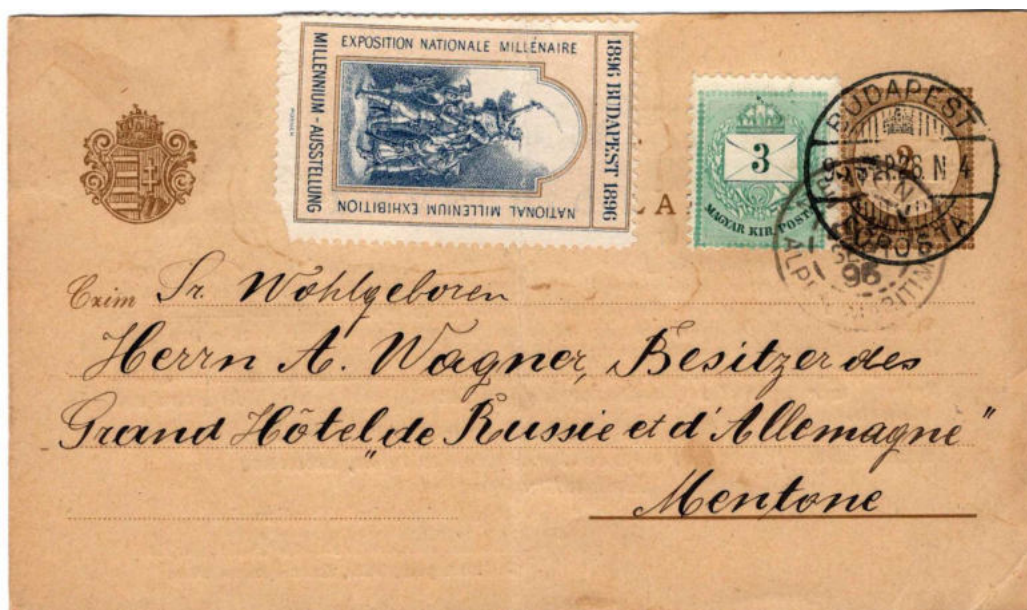 EXPOSITION NATIONALE MILLÉNAIRE
1896 BUDAPEST 1896
NATIONAL MILLENIUM EXHIBITION
MILLENNIUM - AUSSTELLUNG
3
MAGYAR KIR. POSTA
BUDAPEST
SEP. 26. N 4
96
LA
Czim Sr. Wohlgeboren
Herrn A. Wagner, Besitzer des
Grand Hôtel „de Russie et d'Allemagne"
Mentone